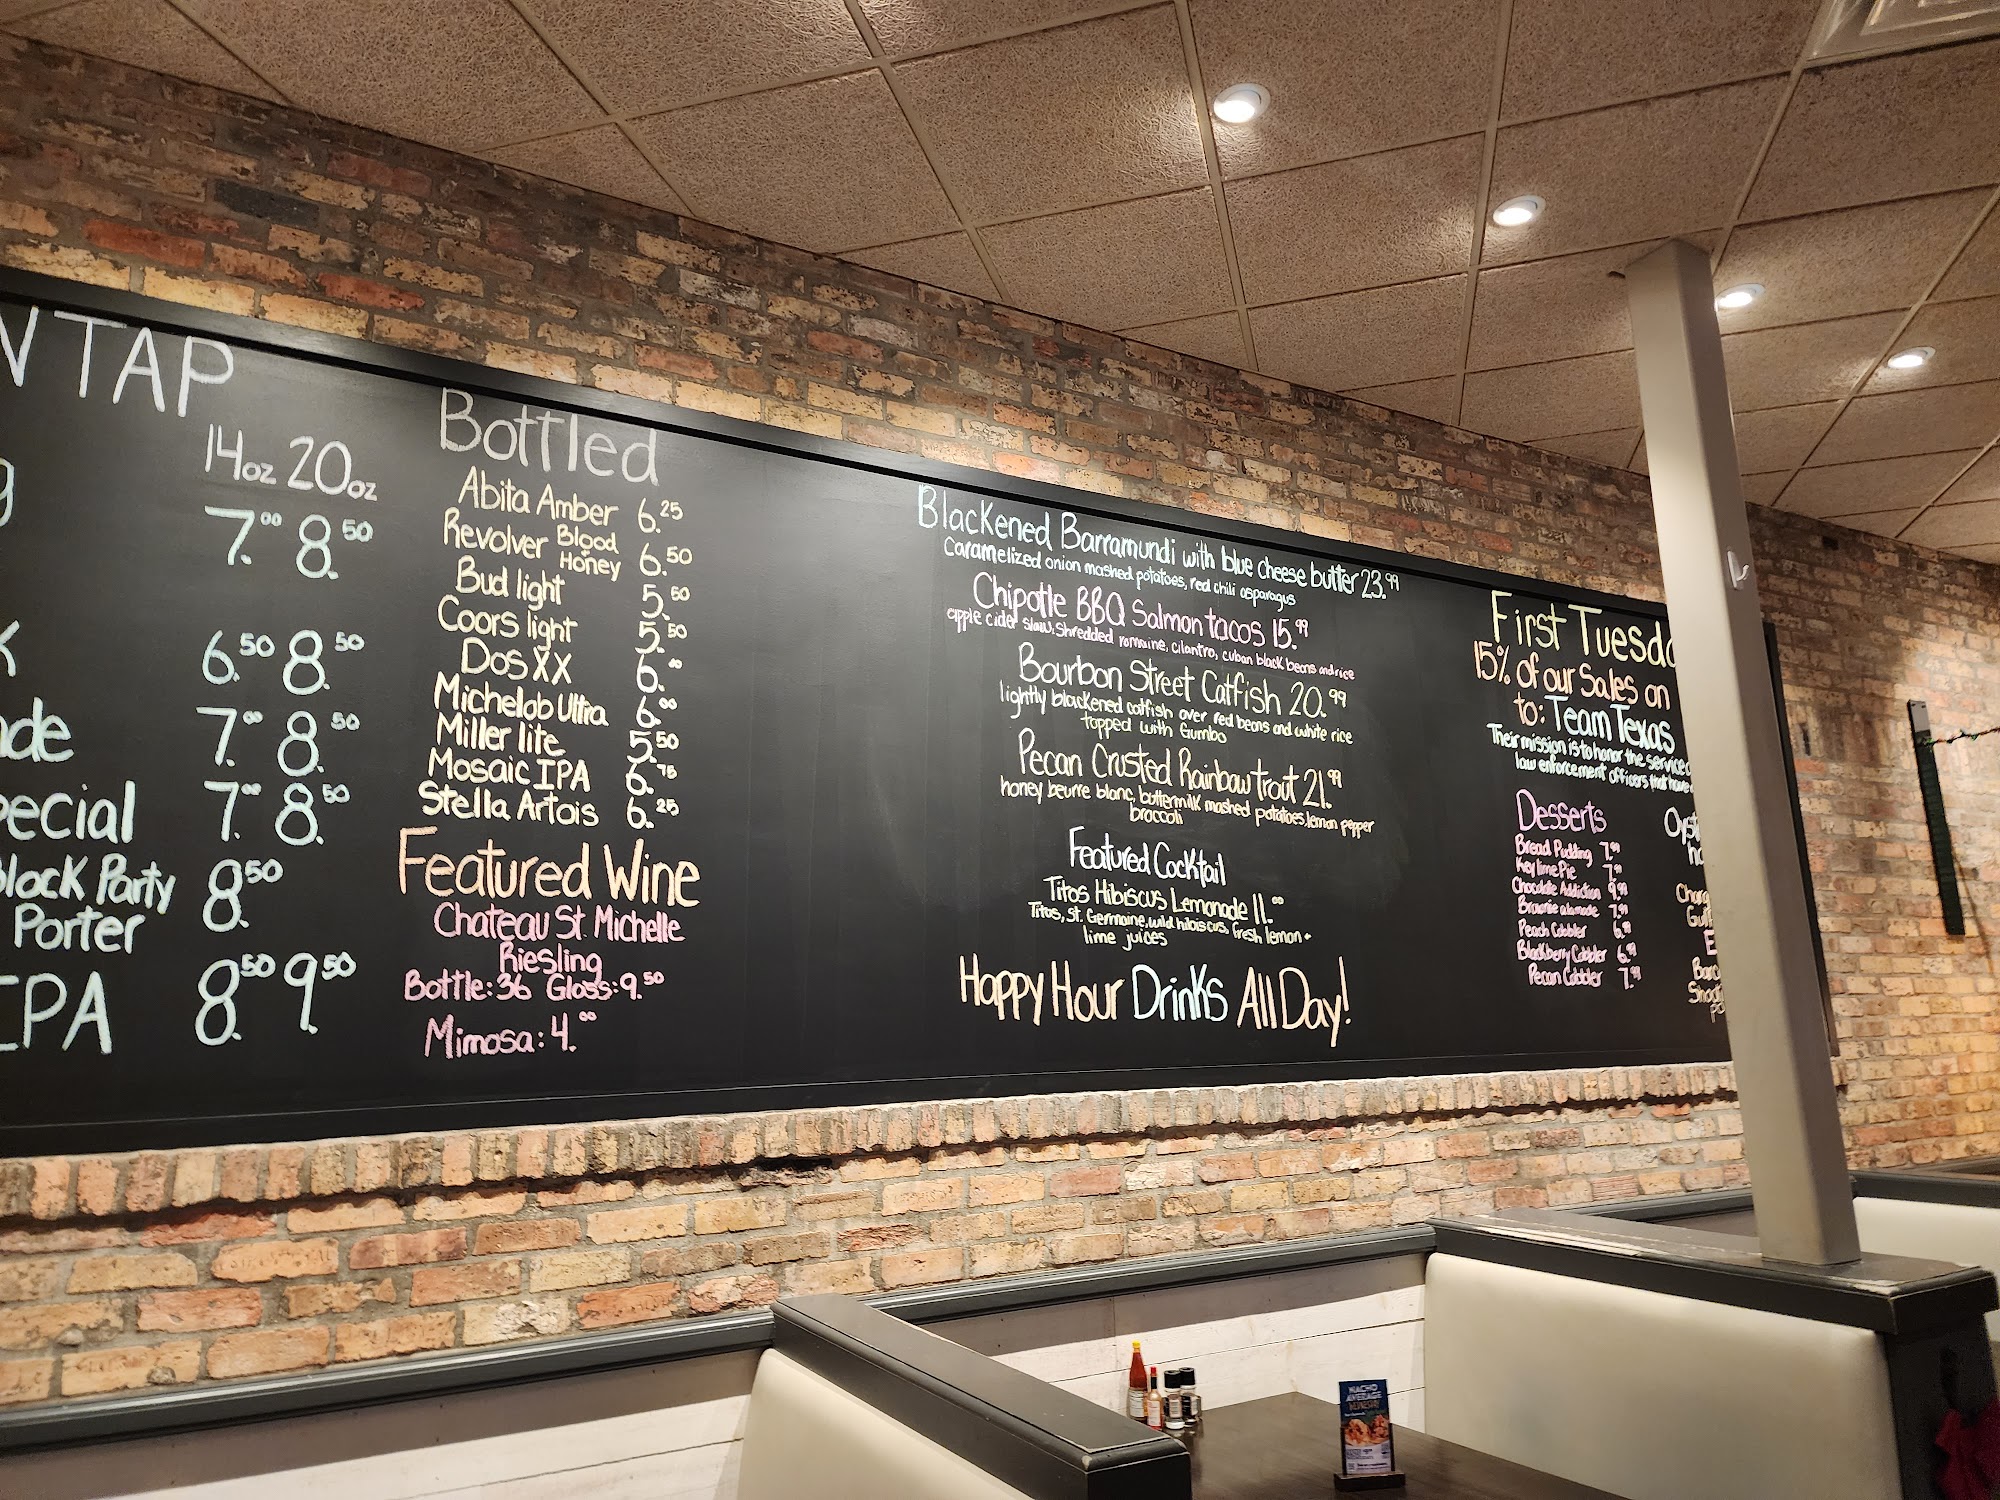 N TAP
14oz 20oz
g 7.00 8.50
K 6.50 8.50
de 7.00 8.50
ecial 7.00 8.50
Black Party 8.50
Porter
IPA 8.50 9.50
Bottled
Abita Amber 6.25
Revolver Blood Honey 6.50
Bud light 5.50
Coors light 5.50
Dos XX 6.00
Michelob Ultra 6.00
Miller lite 5.50
Mosaic IPA 6.75
Stella Artois 6.25
Featured Wine
Chateau St. Michelle
Riesling
Bottle: 36 Glass: 9.50
Mimosa: 4.00
Blackened Barramundi with blue cheese butter 23.99
Caramelized onion mashed potatoes, red chili asparagus
Chipotle BBQ Salmon tacos 15.99
apple cider slaw, shredded romaine, cilantro, cuban black beans and rice
Bourbon Street Catfish 20.99
lightly blackened catfish over red beans and white rice
topped with Gumbo
Pecan Crusted Rainbow trout 21.99
honey beurre blanc, buttermilk mashed potatoes, lemon pepper
broccoli
Featured Cocktail
Titos Hibiscus Lemonade 11.00
Titos, St. Germaine, wild hibiscus, fresh lemon +
lime juices
Happy Hour Drinks All Day!
First Tuesda
15% of our Sales on
to: Team Texas
Their mission is to honor the service o
law enforcement officers that have
Desserts
Bread Pudding 7.99
Key lime Pie 7.99
Chocolate Addiction 9.99
Brownie alamode 7.99
Peach Cobbler 6.99
Blackberry Cobbler 6.99
Pecan Cobbler 7.99
Oyst
Gul
NACHO
AVERAGE
WEDNESDAY